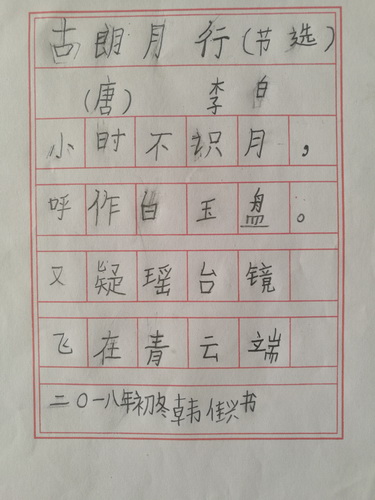 古朗月行(节选)
(唐) 李白
小时不识月,
呼作白玉盘。
又疑瑶台镜
飞在青云端
二〇一八年初冬韩佳兴书